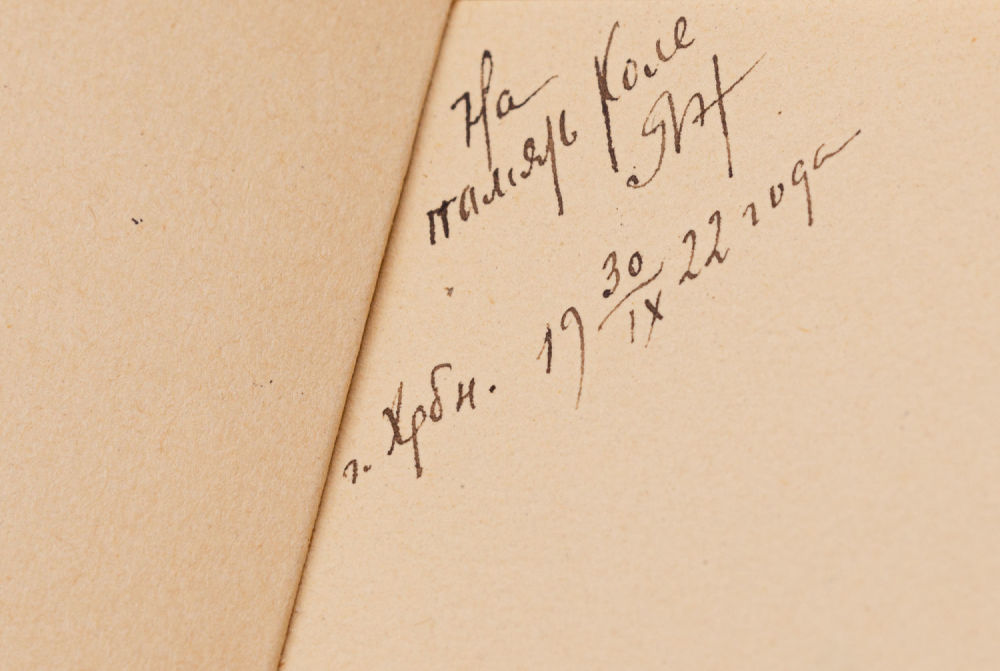 На
память Коле
г. Хрбн. 19 30/IX 22 года